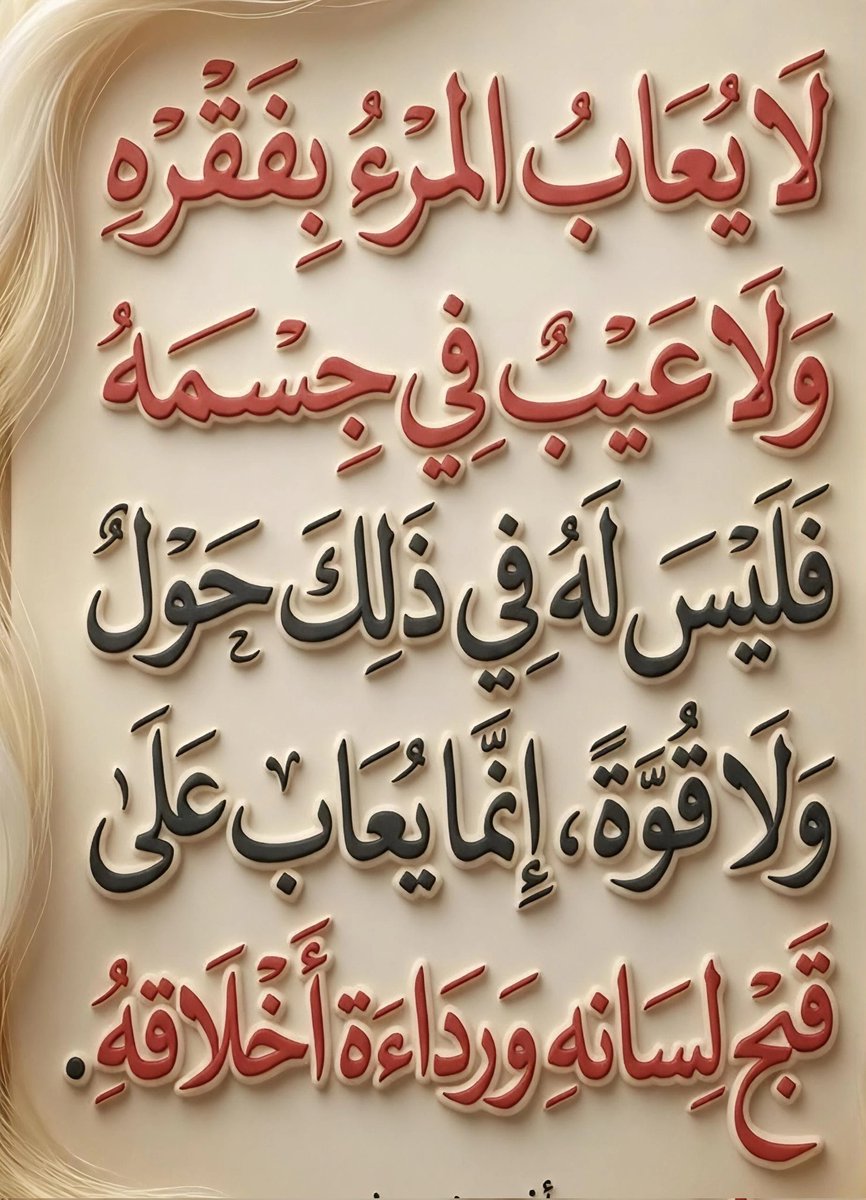 لَا يُعَابُ المَرْءُ بِفَقْرِهِ
وَلَا عَيْبٌ فِي جِسْمَهُ
فَلَيْسَ لَهُ فِي ذَلِكَ حَوْلٌ
وَلَا قُوَّةً، إِنَّمَا يُعَاب عَلَى
قَبْح لِسَانهِ وَرَدَاءَة أَخْلَاقهُِ.